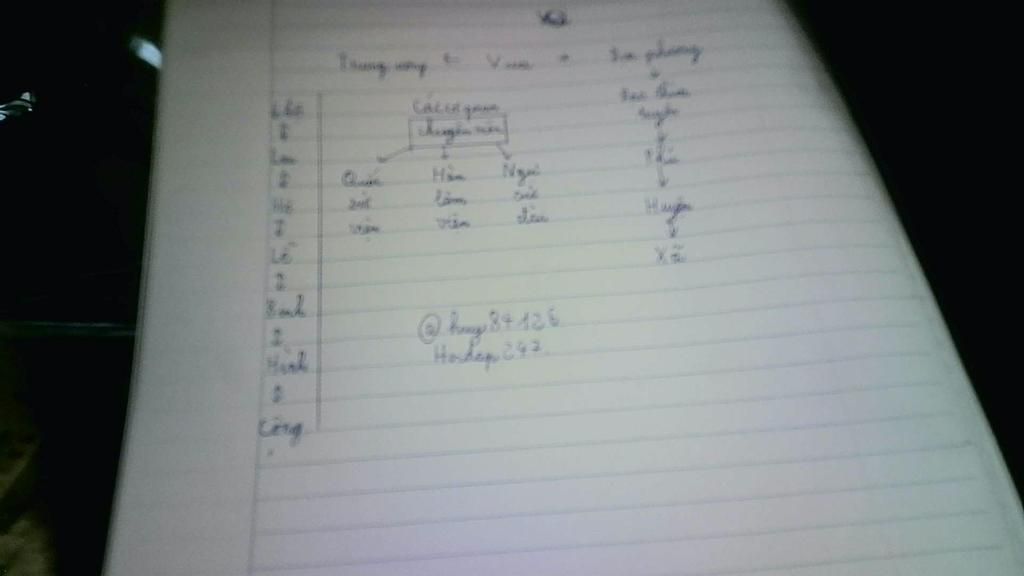 Trung ương ← Vua → Địa phương
Các cơ quan
chuyên môn
Quốc Hàn Ngự
sử lâm sử
viện viện đài
Huyện
Xã
Lại
Hộ
Lễ
Binh
Hình
Công
@ huy84126
Hoidap247.